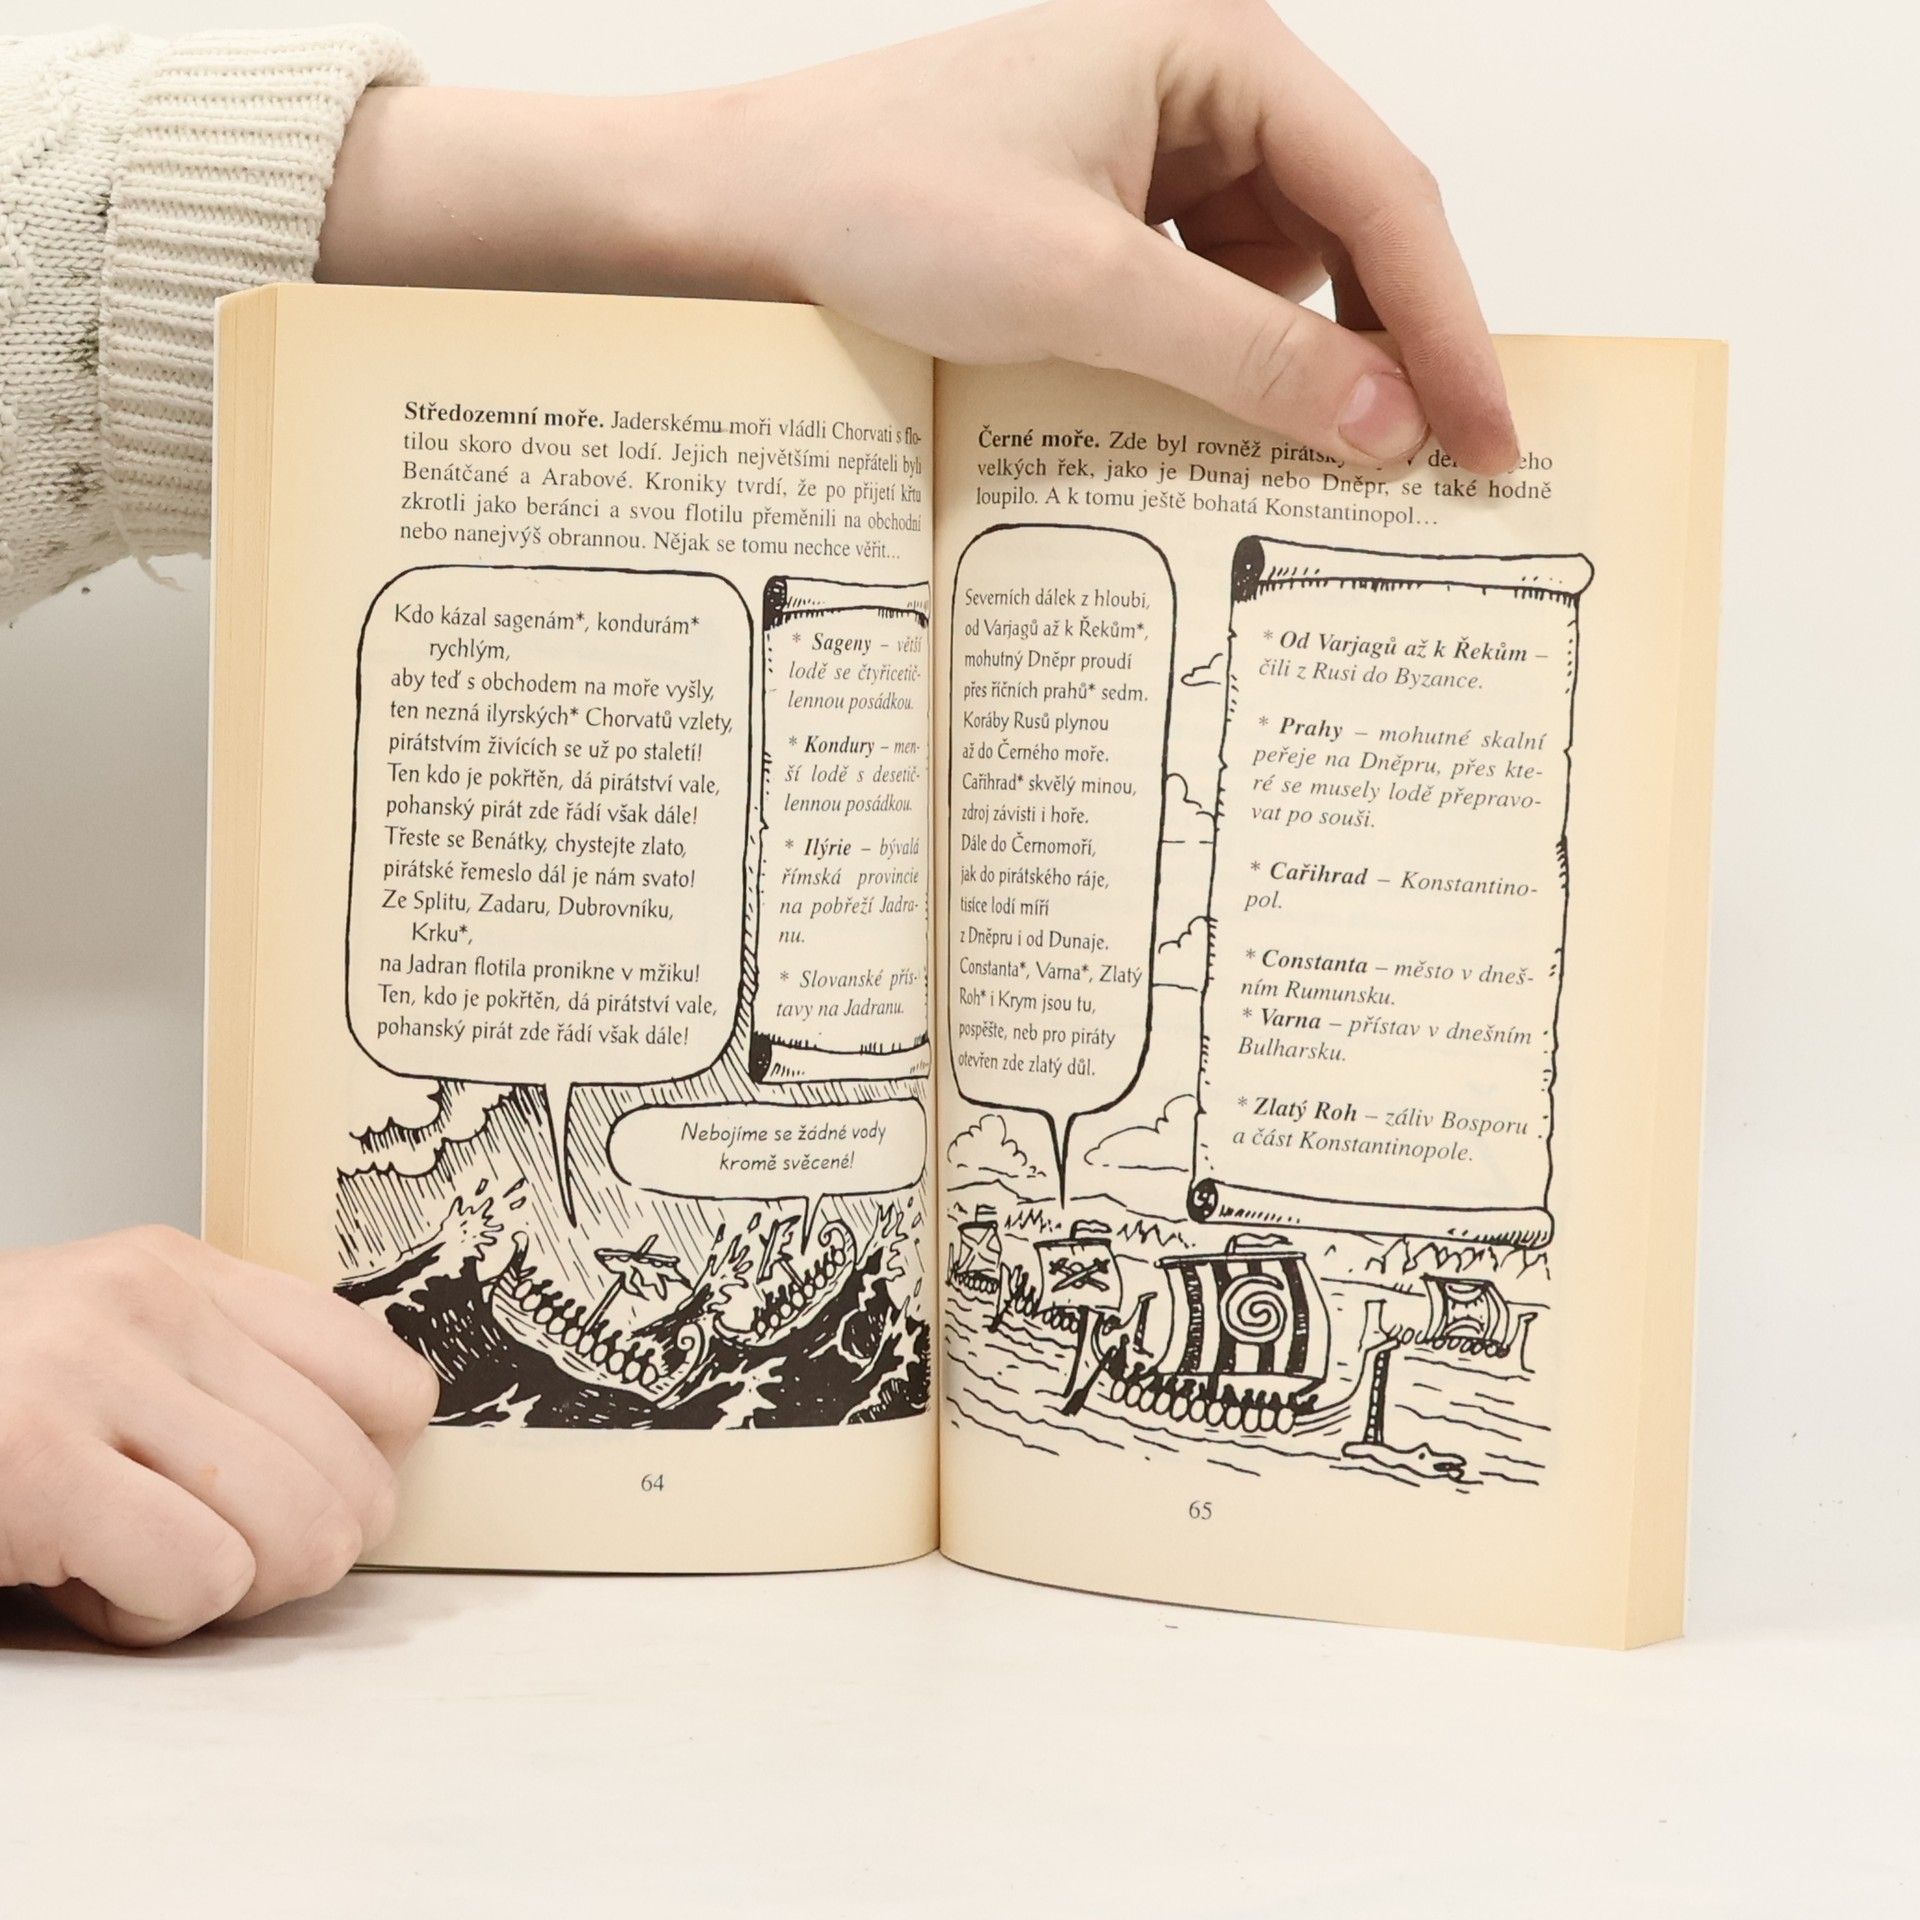 Středozemní moře. Jaderskému moři vládli Chorvati s flo-
tilou skoro dvou set lodí. Jejich největšími nepřáteli byli
Benátčané a Arabové. Kroniky tvrdí, že po přijetí křtu
zkrotli jako beránci a svou flotilu přeměnili na obchodní
nebo nanejvýš obrannou. Nějak se tomu nechce věřit...
Kdo kázal sagenám*, kondurám*
rychlým,
aby teď s obchodem na moře vyšly,
ten nezná ilyrských* Chorvatů vzlety,
pirátstvím živících se už po staletí!
Ten kdo je pokřtěn, dá pirátství vale,
pohanský pirát zde řádí však dále!
Třeste se Benátky, chystejte zlato,
pirátské řemeslo dál je nám svato!
Ze Splitu, Zadaru, Dubrovníku,
Krku*,
na Jadran flotila pronikne v mžiku!
Ten, kdo je pokřtěn, dá pirátství vale,
pohanský pirát zde řádí však dále!
* Sageny – větší
lodě se čtyřicetič-
lennou posádkou.
* Kondury – men-
ší lodě s desetič-
lennou posádkou.
* Ilýrie – bývalá
římská provincie
na pobřeží Jadra-
nu.
* Slovanské přís-
tavy na Jadranu.
Nebojíme se žádné vody
kromě svěcené!
64
Černé moře. Zde byl rovněž
velkých řek, jako je Dunaj nebo Dněpr, se také hodně
loupilo. A k tomu ještě bohatá Konstantinopol...
Severních dálek z hloubi,
od Varjagů až k Řekům*,
mohutný Dněpr proudí
přes říčních prahů* sedm.
Koráby Rusů plynou
až do Černého moře.
Cařihrad* skvělý minou,
zdroj závisti i hoře.
Dále do Černomoří,
jak do pirátského ráje,
tisíce lodí míří
z Dněpru i od Dunaje.
Constanta*, Varna*, Zlatý
Roh* i Krym jsou tu,
pospěšte, neb pro piráty
otevřen zde zlatý důl.
* Od Varjagů až k Řekům –
čili z Rusi do Byzance.
* Prahy – mohutné skalní
peřeje na Dněpru, přes kte-
ré se musely lodě přepravo-
vat po souši.
* Cařihrad – Konstantino-
pol.
* Constanta – město v dneš-
ním Rumunsku.
* Varna – přístav v dnešním
Bulharsku.
* Zlatý Roh – záliv Bosporu
a část Konstantinopole.
65